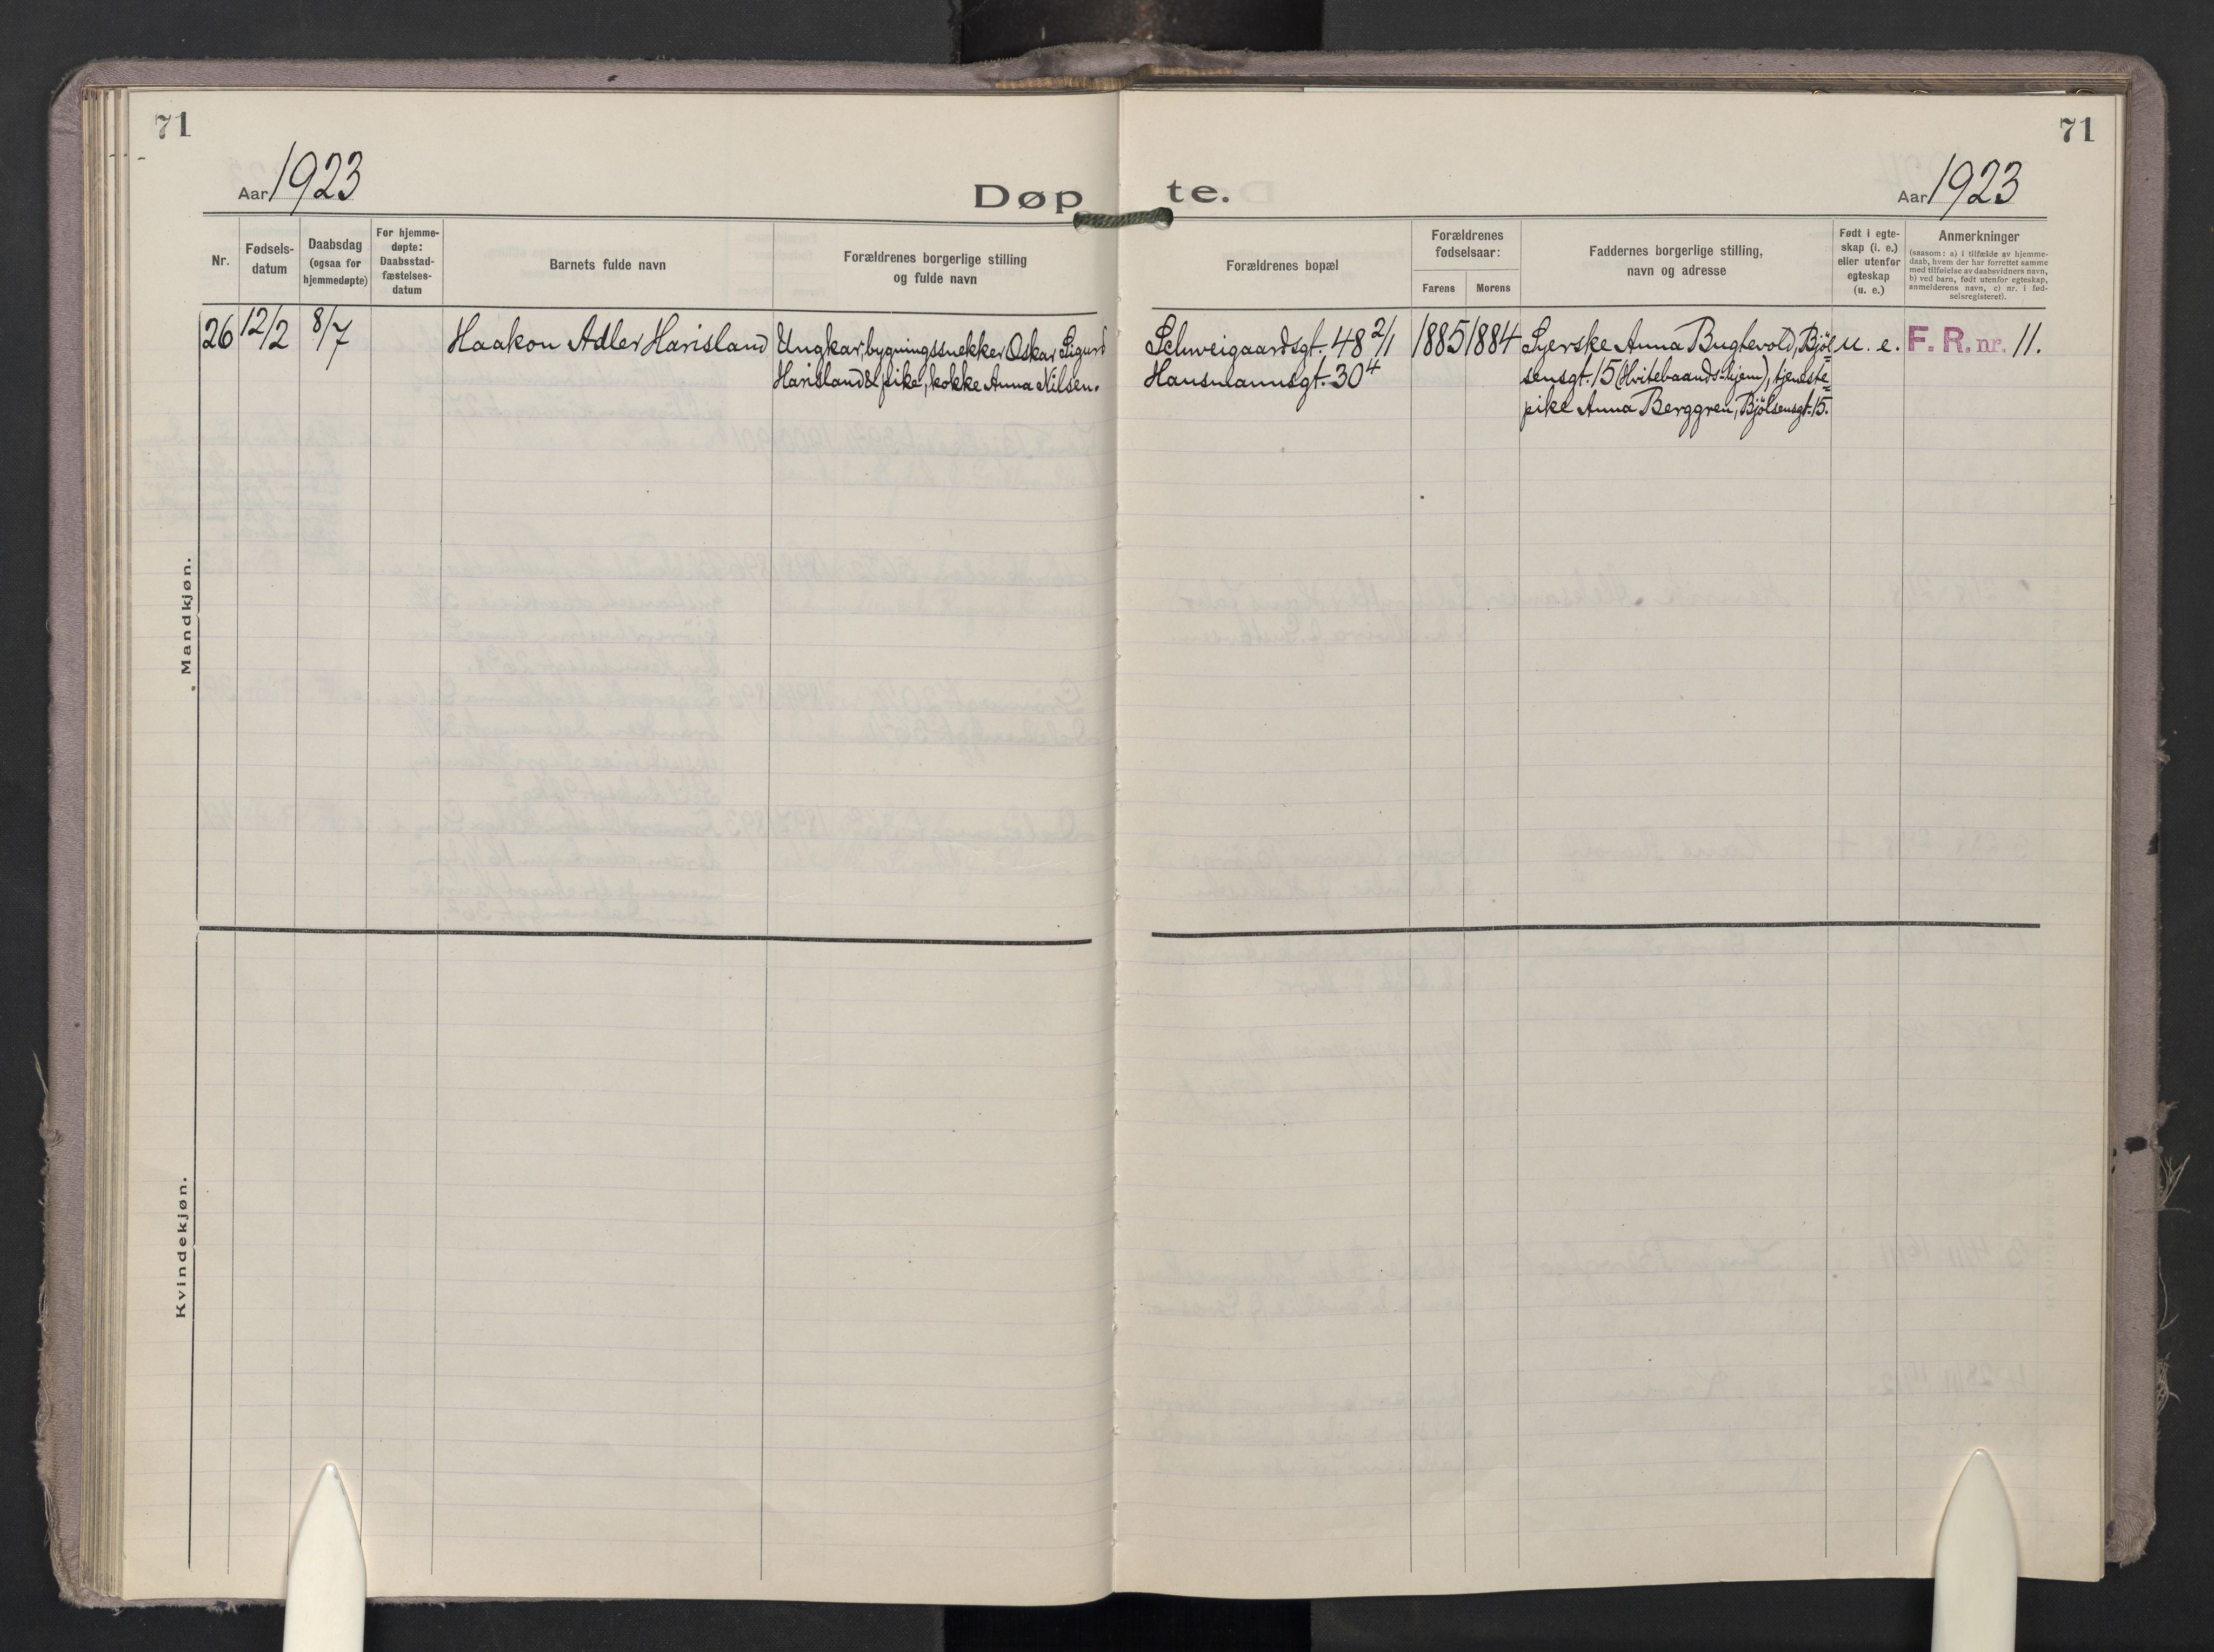 71
Aar 1923
Døp
te.
71
Aar 1923
Nr.
Fødsels-
datum
Daabsdag
(ogsaa for
hjemmedøpte)
For hjemme-
døpte:
Daabsstad-
fæstelses-
datum
Barnets fulde navn
Forældrenes borgerlige stilling
og fulde navn
Forældrenes bopæl
Forældrenes
fødselsaar:
Farens
Morens
Faddernes borgerlige stilling,
navn og adresse
Født i egte-
skap (i. e.)
eller utenfor
egteskap
(u. e.)
Anmerkninger
(saasom: a) i tilfælde av hjemme-
daab, hvem der har forrettet samme
med tilføielse av daabsvidners navn,
b) ved barn, født utenfor egteskap,
anmelderens navn, c) nr. i fød-
selsregisteret).
Mandkjøn.
26
12/2
8/7
Haakon Adler Harisland
Ungkar, bygningssnekker Oskar Sigurd
Harisland & pike, kokke Anna Nilsen.
Schweigaardsgt. 48 2/1
Hausmannsgt. 30 4
1885
1884
Syerske Anna Bughevold, Bjöl=
sensgt. 15 (Hvitebaands-hjem), tjeneste=
pike Anna Berggren, Bjölsensgt. 15.
u. e.
F. R. nr. 11.
Kvindekjøn.